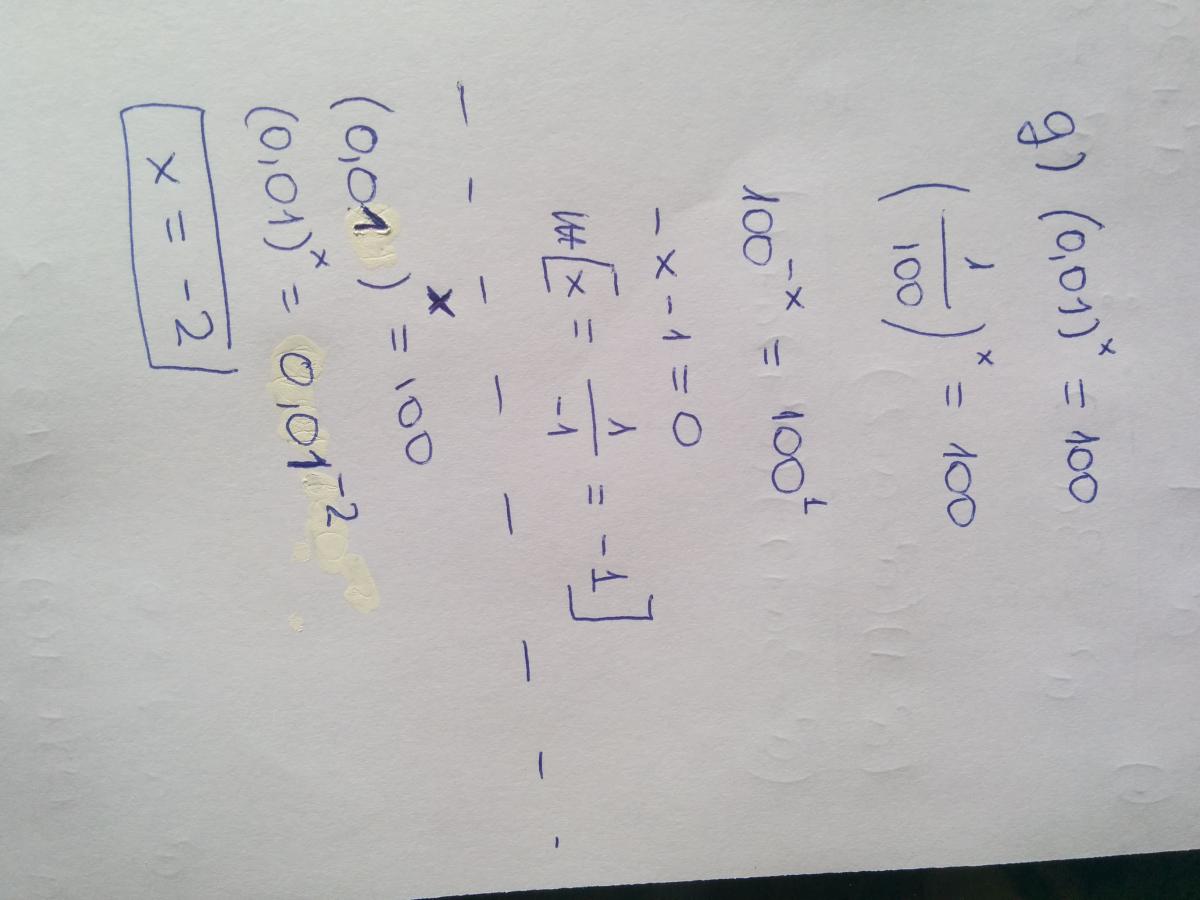 g) (0,01)^x = 100
(1/100)^x = 100
100^-x = 100^1
-x - 1 = 0
[x = 1/-1 = -1]
(0,01)^x = 100
(0,01)^x = 0,01^-2
x = -2